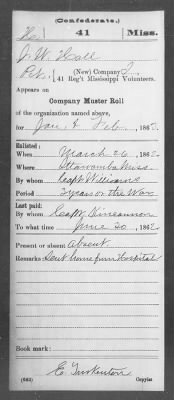 (Confederate.)
H 41 Miss.
J. W. Hall
Pvt., (New) Company I,
41 Reg't Mississippi Volunteers.
Appears on
Company Muster Roll
of the organization named above,
for Jan. & Feb., 186
Enlisted:
When March 20, 1862
Where Itawamba Miss.
By whom Capt. Williams
Period 3 years or the War
Last paid:
By whom Capt. Kincannon
To what time June 30, 1862
Present or absent Absent
Remarks: Sent home from Hospital
Book mark:
E. Turkenton
Copyist.